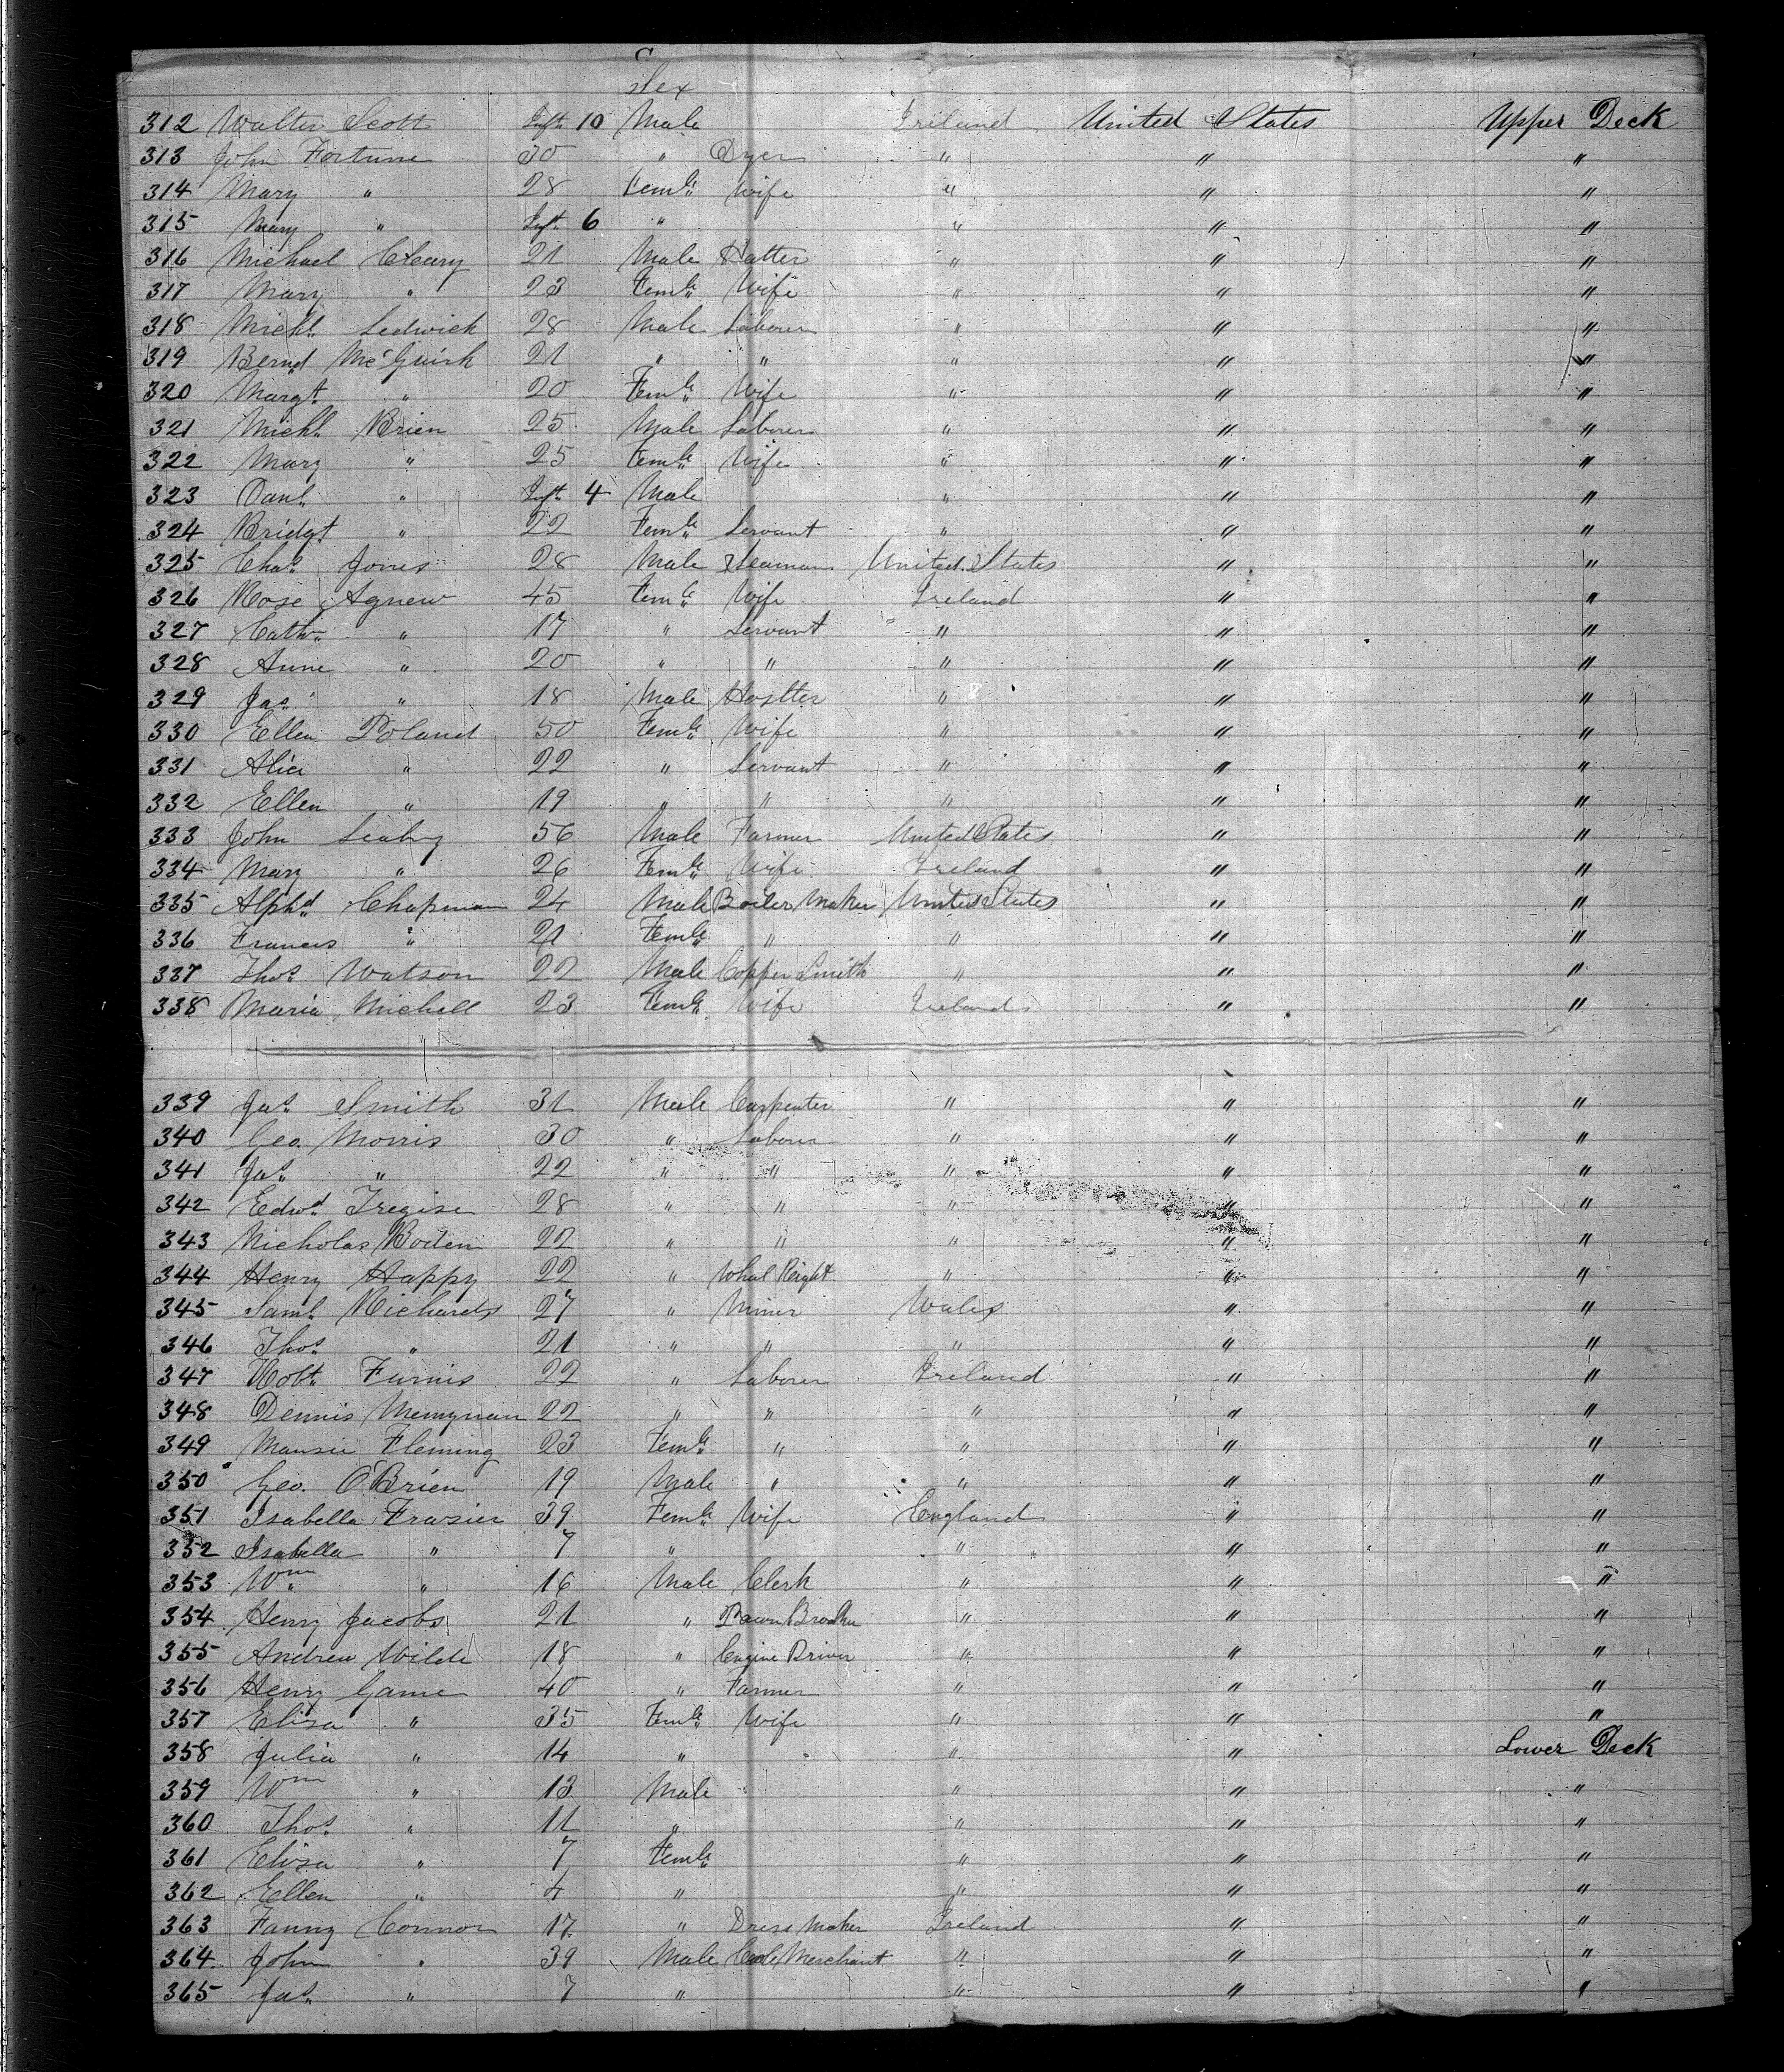 Sex
312 Walter Scott Inft. 10 Male Ireland United States Upper Deck
313 John Fortune 30 " Dyer " " "
314 Mary " 28 Femle Wife " " "
315 Mary " Inft. 6 " " " "
316 Michael Cleary 21 Male Hatter " " "
317 Mary " 23 Femle Wife " " "
318 Michl. Ledwick 28 Male Laborer " " "
319 Bernd McGuirk 21 " " " " "
320 Margt. " 20 Femle Wife " " "
321 Michl. Brien 25 Male Laborer " " "
322 Mary " 25 Femle Wife " " "
323 Danl. " Inft. 4 Male " " "
324 Bridgt " 22 Femle Servant " " "
325 Chas. Jones 28 Male Seaman United States " "
326 Rose Agnew 45 Femle Wife Ireland " "
327 Cathn. " 17 " Servant " " "
328 Anne " 20 " " " " "
329 Jas. " 18 Male Hostler " " "
330 Ellen Poland 50 Femle Wife " " "
331 Alice " 22 " Servant " " "
332 Ellen " 19 " " " " "
333 John Leahy 56 Male Farmer United States " "
334 Mary " 26 Femle Wife Ireland " "
335 Alphd Chapman 24 Male Boiler Maker United States " "
336 Frances " 21 Femle " " " "
337 Thos. Watson 22 Male Copper Smith " " "
338 Maria Michell 23 Femle Wife Ireland " "
339 Jas. Smith 31 Male Carpenter " " "
340 Geo. Morris 30 " Laborer " " "
341 Jas. " 22 " " " " "
342 Edwd. Tregise 28 " " " " "
343 Nicholas Boden 22 " " " " "
344 Henry Happy 22 " Wheel Reight " " "
345 Saml. Richards 27 " Miner Wales " "
346 Thos. " 21 " " " " "
347 Robt. Furnis 22 " Laborer Ireland " "
348 Dennis 22 " " " " "
349 Fleming 23 Femle " " " "
350 Geo. O'Brien 19 Male " " " "
351 Isabella Frasier 39 Femle Wife England " "
352 Isabella " 7 " " " "
353 Wm. " 16 Male Clerk " " "
354 Henry Jacobs 21 " Pawn Broker " " "
355 Andrew Wilde 18 " Engine Driver " " "
356 Henry Game 40 " Farmer " " "
357 Eliza " 35 Femle Wife " " "
358 Julia " 14 " " " Lower Deck
359 Wm " 13 Male " " "
360 Thos. " 11 " " " "
361 Eliza " 7 Femle " " "
362 Ellen " 4 " " " "
363 Fanny Connor 17 " Dress Maker Ireland " "
364 John " 39 Male Cole Merchant " " "
365 Jas. " 7 " " " "